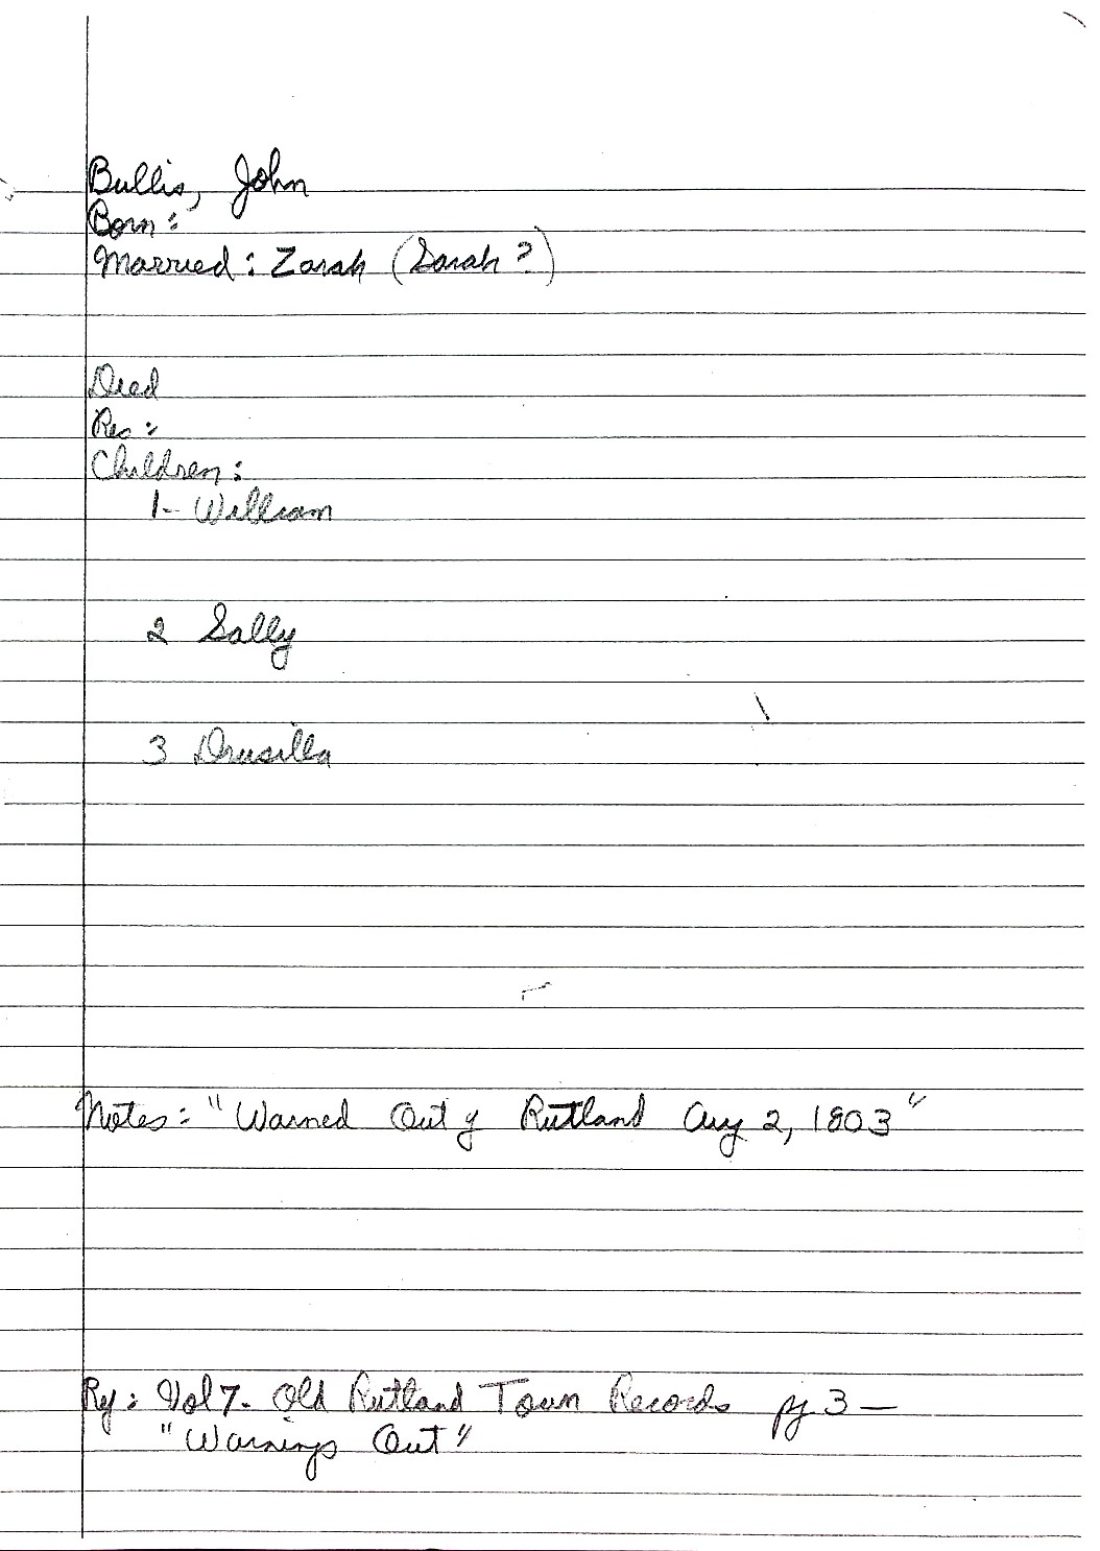 Bullis, John
Born:
Married: Zarah (Sarah?)
Died
Res:
Children:
1- William
2 Sally
3 Drusilla
Notes: "Warned Out of Rutland Aug 2, 1803"
Ref: Vol 7- Old Rutland Town Records pg 3 —
"Warnings Out"